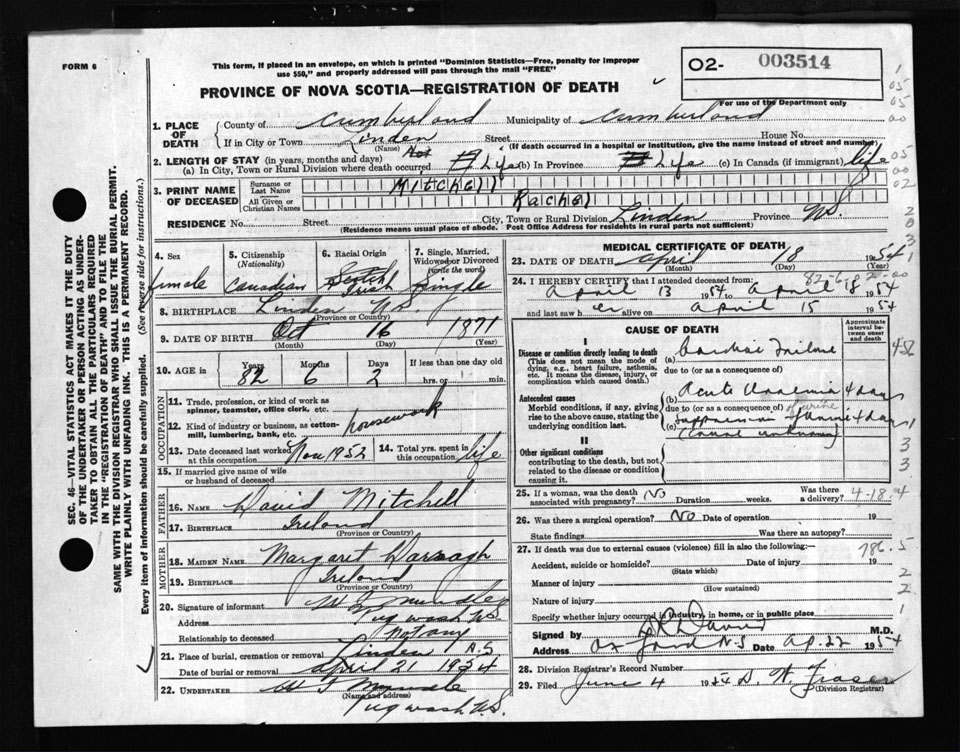 FORM 6
This form, if placed in an envelope, on which is printed "Dominion Statistics—Free, penalty for improper
use $50," and properly addressed will pass through the mail "FREE"
O2- 003514
For use of the Department only
PROVINCE OF NOVA SCOTIA—REGISTRATION OF DEATH
1. PLACE OF DEATH
County of Cumberland Municipality of Cumberland
If in City or Town Linden Street House No.
(Name) (If death occurred in a hospital or institution, give the name instead of street and number)
2. LENGTH OF STAY (in years, months and days)
(a) In City, Town or Rural Division where death occurred Life (b) In Province Life (c) In Canada (if immigrant) life
3. PRINT NAME OF DECEASED
Surname or Last Name Mitchell
All Given or Christian Names Rachel
RESIDENCE No. Street City, Town or Rural Division Linden Province N.S.
(Residence means usual place of abode. Post Office Address for residents in rural parts not sufficient)
4. Sex
female
5. Citizenship (Nationality)
Canadian
6. Racial Origin
Scotch
Irish
7. Single, Married, Widowed or Divorced (write the word)
Single
8. BIRTHPLACE Linden N.S.
(Province or Country)
9. DATE OF BIRTH Oct 16 1871
(Month) (Day) (Year)
10. AGE in Years Months Days If less than one day old
82 6 2 hrs. or min.
OCCUPATION
11. Trade, profession, or kind of work as
spinner, teamster, office clerk, etc.
12. Kind of industry or business, as cotton-
mill, lumbering, bank, etc. housework
13. Date deceased last worked at this occupation Nov 1952
14. Total yrs. spent in this occupation life
15. If married give name of wife
or husband of deceased
FATHER
16. NAME David Mitchell
17. BIRTHPLACE Ireland
(Province or Country)
MOTHER
18. MAIDEN NAME Margaret
19. BIRTHPLACE Ireland
(Province or Country)
20. Signature of informant
Address Pugwash N.S.
Relationship to deceased not any
21. Place of burial, cremation or removal Linden N.S
Date of burial or removal April 21 1954
22. UNDERTAKER
(Name and address)
Pugwash N.S.
MEDICAL CERTIFICATE OF DEATH
23. DATE OF DEATH April 18 1954
(Month) (Day) (Year)
82-6-2
24. I HEREBY CERTIFY that I attended deceased from:
April 13 1954 to April 18 1954
and last saw her alive on April 15 1954
CAUSE OF DEATH
Approximate interval between onset and death
I
Disease or condition directly leading to death
(This does not mean the mode of
dying, e.g., heart failure, asthenia,
etc. It means the disease, injury, or
complication which caused death.)
(a) Cardiac Failure
due to (or as a consequence of)
Antecedent causes
Morbid conditions, if any, giving
rise to the above cause, stating the
underlying condition last.
(b) Acute Uraemia 4 days
due to (or as a consequence of)
(c) suppression of urine 4 days
(cause unknown)
II
Other significant conditions
contributing to the death, but not
related to the disease or condition
causing it.
25. If a woman, was the death
associated with pregnancy? No Duration weeks. Was there a delivery?
4-18.4
26. Was there a surgical operation? No Date of operation 19
State findings Was there an autopsy?
27. If death was due to external causes (violence) fill in also the following:—
786.5
Accident, suicide or homicide? Date of injury 19
(State which)
Manner of injury
(How sustained)
Nature of injury
Specify whether injury occurred in industry, in home, or in public place
Signed by M.D.
Address Oxford N.S Date Ap. 22 1954
28. Division Registrar's Record Number
29. Filed June 4 1954 D. W. Fraser
(Division Registrar)
SEC. 46—VITAL STATISTICS ACT MAKES IT THE DUTY
OF THE UNDERTAKER OR PERSON ACTING AS UNDER-
TAKER TO OBTAIN ALL THE PARTICULARS REQUIRED
IN THE "REGISTRATION OF DEATH" AND TO FILE THE
SAME WITH THE DIVISION REGISTRAR WHO SHALL ISSUE THE BURIAL PERMIT.
WRITE PLAINLY WITH UNFADING INK. THIS IS A PERMANENT RECORD.
Every item of information should be carefully supplied. (See reverse side for instructions.)